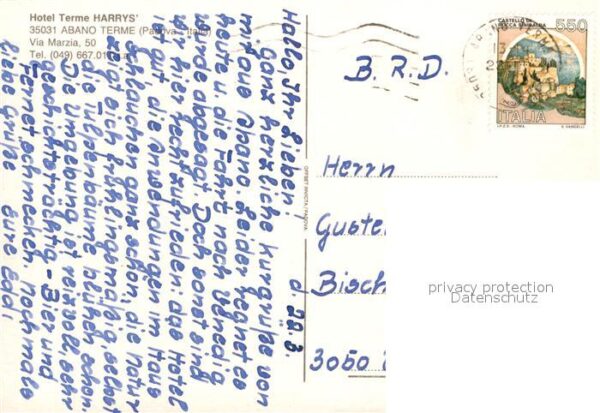 Hotel Terme HARRYS'
35031 ABANO TERME (Padova - Italia)
Via Marzia, 50
Tel. (049) 667.011
d. 22.3.
Hallo Ihr Lieben!
Ganz herzliche Kurgrüße von
mir aus Abano. Leider regnet es
heute u. die Fahrt nach Venedig
wurde abgesagt. Doch sonst sind
wir hier recht zufrieden, das Hotel
ist gut, die Anwendungen im Haus
schlauchen ganz schön, die Natur
zeigt sich frühlingsmäßig, selbst
die Tulpenbäume blühen schon.
Die Umgebung ist reizvoll, sehr
geschichtsträchtig - Bier und
Fernet schmecken. Nochmals
liebe Grüße Eure Eddi
OFFSET INVICTA PADOVA
B.R.D.
Herrn
Guste
Bisch
3060
CASTELLO DI
ROCCA SINIBALDA
550
ITALIA
I.P.Z.S. - ROMA
E. VANGELLI
privacy protection
Datenschutz